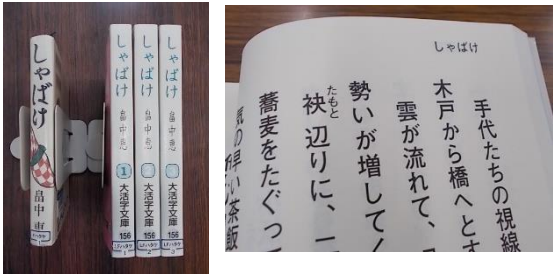 しゃばけ
畠中 恵
しゃばけ
畠中恵
1
大活字文庫
156
LFハタケ
1
しゃばけ
畠中恵
2
大活字文庫
156
LFハタケ
2
しゃばけ
畠中恵
3
大活字文庫
156
LFハタケ
3
しゃばけ
手代たちの視線
木戸から橋へとす
雲が流れて、
勢いが増してく
たもと
袂辺りに、一
蕎麦をたぐっ
の早い茶飯